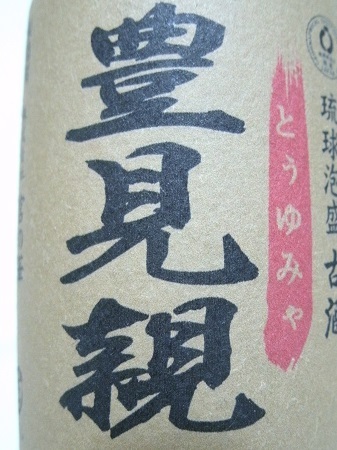 琉球泡盛古酒
とぅゆみゃ
豊見親